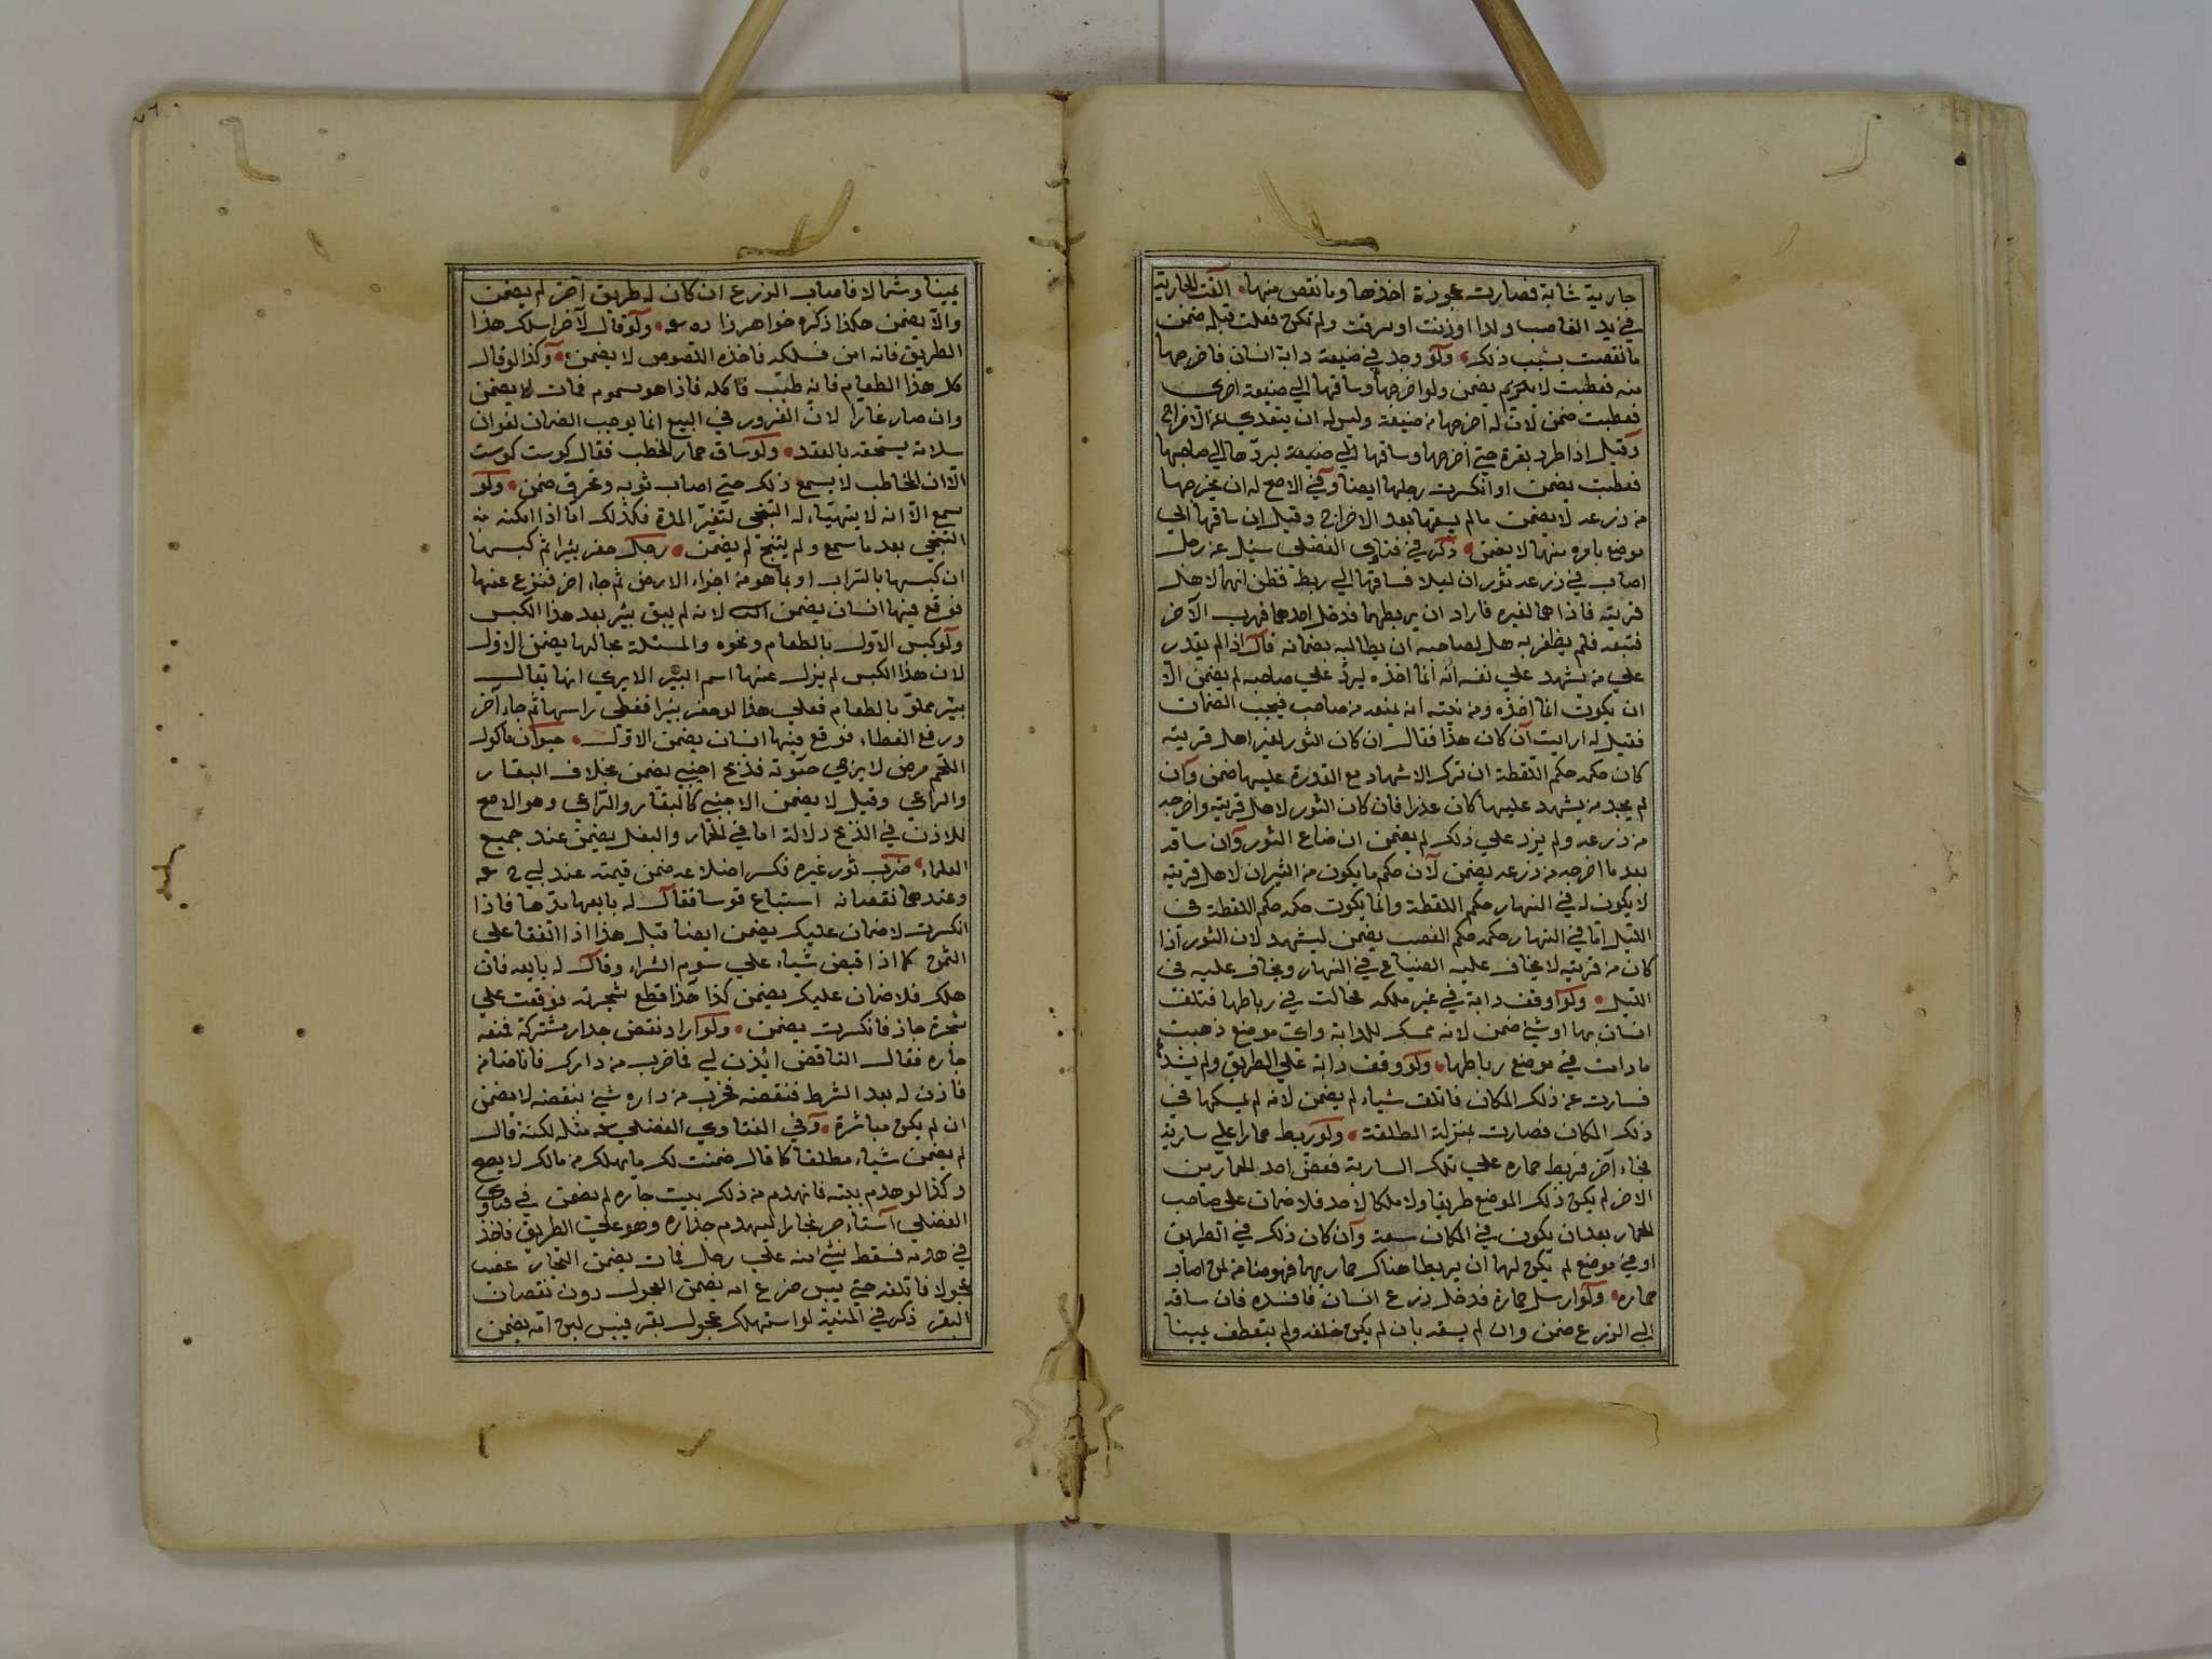 جارية شابة فصارت عجوزة اخذها وما نقص منها الفت الجارية
في يد الغاصب ولدا اوزنت اوسرقت ولم تكن فعلت قبله ضمن
ما نقصت بسبب ذلك ولو وجد في ضيعته دابة انسان فاخرجها
منه فعطبت لا يضمن ولو اخرجها وساقها الي ضيعة اخرى
فعطبت ضمن لان له اخرجها من ضيعته وليس له ان يتعدي عن الاخراج
وقيل اذا طرد بقرة حتي اخرجها وساقها الي ضيعته ليردها الي صاحبها
فعطبت يضمن او انكسرت رجلها ايضا وفي الاصح له ان يخرجها
من زرعه لا يضمن ما لم يسقها بعد الاخراج وقيل ان ساقها الي
موضع يامن منها لا يضمن ذكر في فتاوي الفضلي سئل عن رجل
اصاب في زرعه ثوران ليلا فساقها الي ربط فظن انهما لاهل
قريته فاذا هما لغيره فاراد ان يربطهما فدخل احدهما فهرب الآخر
فتبعه فلم يظفر به هل لصاحبه ان يطالبه بضمانه قال اذا لم يقدر
علي من يشهد علي نفسه انه انما اخذه ليرد علي صاحبه لم يضمن الا
ان يكون انما اخذه ومن نيته ان يمنعه من صاحبه فيجب الضمان
فقيل له ارايت ان كان هذا فقال ان كان الثور لغير اهل قريته
كان حكمه حكم اللقطة ان ترك الاشهاد مع القدرة عليها ضمن وان
لم يجد من يشهد عليها كان عذرا فان كان الثور لاهل قريته واخرجه
من زرعه ولم يزد علي ذلك لم يضمن ان ضاع الثور وان ساقه
بعد ما اخرجه من زرعه يضمن لان حكم ما يكون من الثيران لاهل قريته
لا يكون له في النهار حكم اللقطة وانما يكون حكمه حكم اللقطة في
الليل اما في النهار حكمه حكم الغصب يضمن ليشهد لان الثور اذا
كان من قريته لا يخاف عليه الضياع في النهار ويخاف عليه في
الليل ولو اوقف دابة في غير ملكه فجالت في رباطها فتلفت
انسان بها او شئ ضمن لانه ممسك للدابة واي موضع ذهبت
ما دامت في موضع رباطها ولو وقف دابة علي الطريق ولم يشدها
فسارت عن ذلك المكان فاتلف شياء لم يضمن لانه لم يمسكها في
ذلك المكان فصارت بمنزلة المطلقة ولو ربط حمارا علي سارية
فجاء آخر فربط حماره علي تلك السارية فعض احد الحمارين
الاخر لم يكن ذلك الموضع طريقا ولا ملكا لاحد فلا ضمان علي صاحب
الحمار بعد ان يكون في المكان سعة وان كان ذلك في الطريق
او في موضع لم يكن لهما ان يربطا هناك حماريهما فهو ضامن لمن اصاب
حماره ولو ارسل حمارة فدخل زرع انسان فافسده فان ساقه
الي الزرع ضمن وان لم يسقه بان لم يكن خلفه ولم يتعطف يمينا
يمينا وشمالا فاصاب الزرع ان كان له طريق آخر لم يضمن
والا يضمن هكذا ذكره خواهرزاده ولو قال لآخر اسلك هذا
الطريق فانه امن فسلكه فاخذه اللصوص لا يضمن وكذا لو قال
كل هذا الطعام فانه طيب فاكله فاذا هو مسموم فمات لا يضمن
وان صار غارا لان الغرور في البيع انما يوجب الضمان لفوات
سلامة يستحقه بالعقد ولو ساق حمار الحطب فقال كوست كوست
الا ان المخاطب لا يسمع ذلك حتي اصاب ثوبه وتخرق ضمن ولو
سمع الا انه لا يتهياء له التنحي لتغير المدة فكذلك اما اذا امكنه من
التنحي بعد ما سمع ولم يتنح لم يضمن رجل حفر بئرا ثم كبسها
ان كبسها بالتراب او بما هو من اجزاء الارض ثم جاء اخر فنزع عنها
فوقع فيها انسان يضمن لانه لم يبق بئر بعد هذا الكبس
ولو كبس الاول بالطعام ونحوه والمسئلة بحالها يضمن الاول
لان هذا الكبس لم يزل عنها اسم البئر الا يري انها يقال
بئر مملو بالطعام فعلي هذا لو حفر بئرا فغطي راسها ثم جاء آخر
ورفع الغطاء فوقع فيها انسان يضمن الاول حيوان ماكول
اللحم مرض لا يرجي حيوته فذبح اجنبي يضمن بخلاف البقار
والراعي وقيل لا يضمن الاجنبي كالبقار والراعي وهو الاصح
للاذن في الذبح دلالة اما في الحمار والبغل يضمن عند جميع
العلماء ضرب ثور غيره فكسر اضلاعه ضمن قيمته عند ابي ح
وعندهما نقصانه استباع قوسا فقال له بايعها مدها فاذا
انكسرت لا ضمان عليك يضمن ايضا قيل هذا اذا اتفقا علي
الثمن كما اذا قبض شياء علي سوم الشراء وقال له بايعه فان
هلك فلا ضمان عليك يضمن كذا هذا قطع شجرته فوقعت علي
شجرة جاره فانكسرت يضمن ولو اراد نقض جدار مشتركة فمنعه
جاره فقال الناقض ائذن لي فما خرب من دارك فانا ضامنه
فاذن له بعد الشرط فنقضه فخرب من داره شئ بنقضه لا يضمن
ان لم يكن مباشرة وفي الفتاوي الفضلي مثله لكنه قال
لم يضمن شياء مطلقا كما قال ضمنت لك ما يهلك من مالك لا يصح
وكذا لو هدم بيته فانهدم من ذلك بيت جاره لم يضمن في فتاوي
الفضلي استاجر نجارا ليهدم جداره وهو علي الطريق فاخذ
في هدمه فسقط شئ منه علي رجل فمات يضمن النجار غصب
عجولا فاتلفه حتي يبس ضرع امه يضمن العجول دون نقصان
البقر ذكر في المنية لو استهلك عجول بقر فيبس لبن امه يضمن